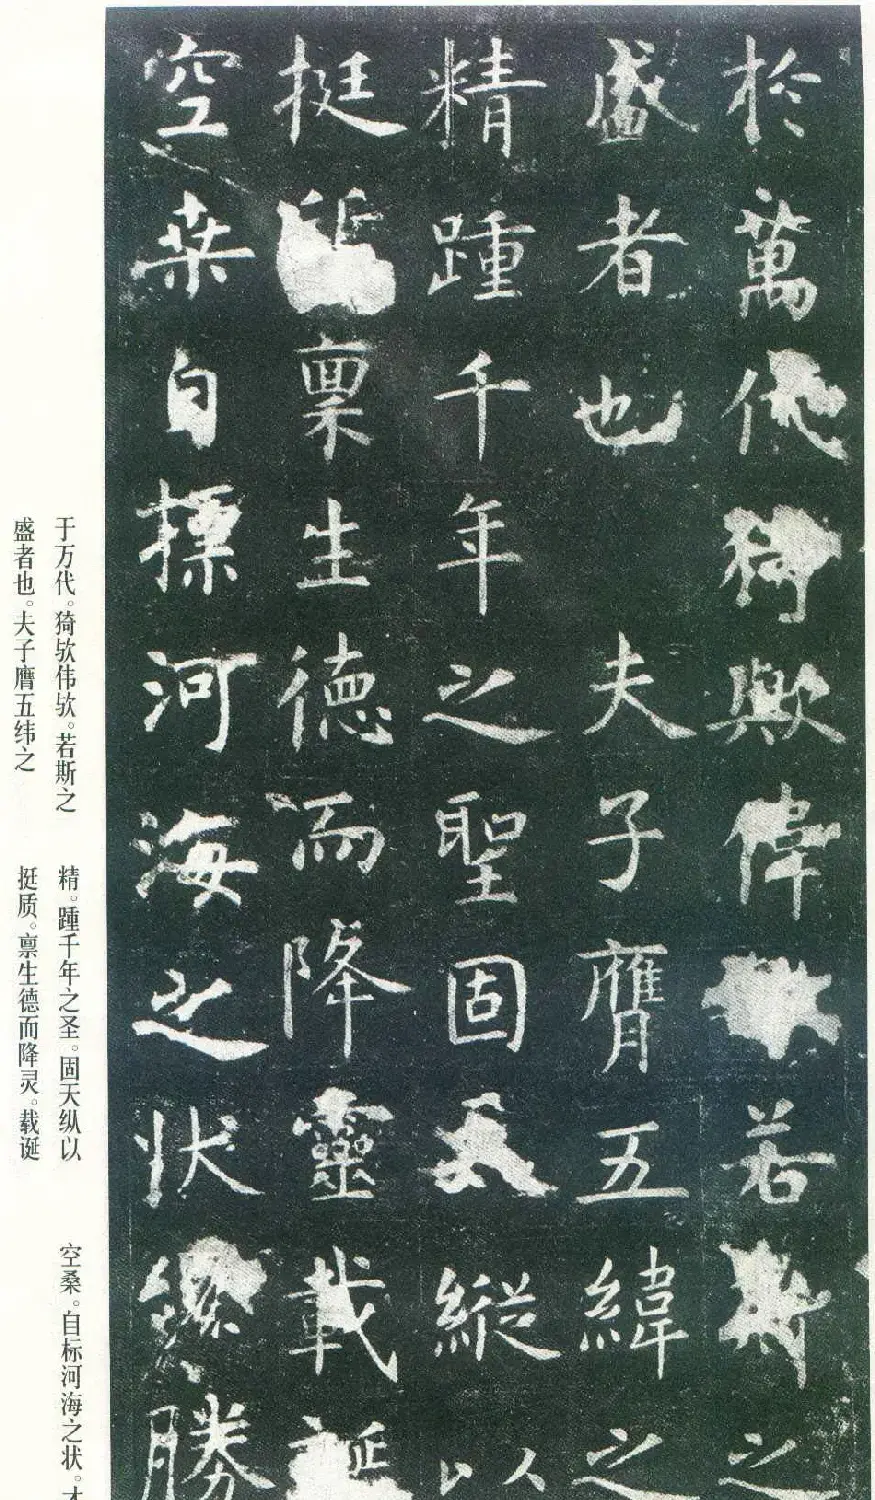 於萬代猗歟偉若斯之
盛者也 夫子膺五緯之
精踵千年之聖固天縱以
挺稟生德而降靈載誕
空桒自摽河海之狀纔勝
于万代。猗欤伟欤。若斯之
盛者也。夫子膺五纬之
精。踵千年之圣。固天纵以
挺质。禀生德而降灵。载诞
空桑。自标河海之状。才